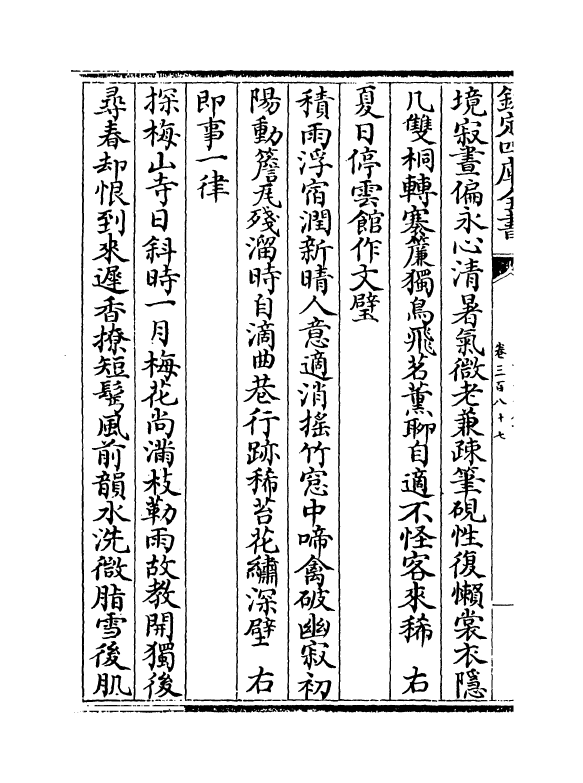 欽定四庫全書
卷三百八十七
境寂晝偏永心清暑氣微老兼疎筆硯性復懶裳衣隱
几雙桐轉褰簾獨鳥飛茗薰聊自適不怪客來稀　右
夏日停雲館作文璧
積雨浮宿潤新晴人意適消搖竹窓中啼禽破幽寂初
陽動簷瓦殘溜時自滴曲巷行跡稀苔花繡深壁　右
即事一律
探梅山寺日斜時一月梅花尚滿枝勒雨故教開獨後
尋春却恨到來遲香撩短鬢風前韻水洗微脂雪後肌